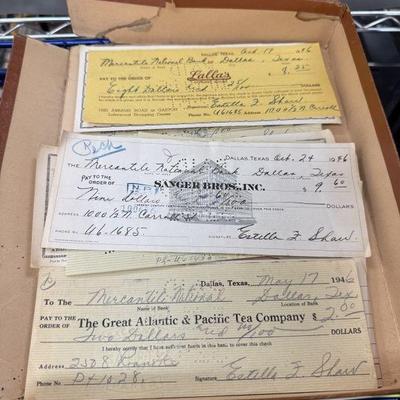 DALLAS, TEXAS, Oct 19 1946
Mercantile National Bank Dallas, Texas
PAY TO THE ORDER OF Lalla's $ 8.25
Eight Dollars and 25/100 DOLLARS
Estella F. Shaw
Phone No. U61685 Address 1000½ N. Carroll
THE DALLAS TEXAS, Oct. 24 1946
Mercantile National Bank Dallas, Texas
PAY TO THE ORDER OF SANGER BROS., INC. $ 9.60
Nine Dollars 60/100 DOLLARS
ADDRESS 1000½ N. Carroll St.
PHONE NO. U6.1685. SIGNATURE Estella F. Shaw
Dallas, Texas, May 17 1946
To The Mercantile National Dallas, Tex
Name of Bank Location of Bank
PAY TO THE ORDER OF The Great Atlantic & Pacific Tea Company $ 2.00
Two Dollars and no/100 DOLLARS
I hereby certify that I have sufficient funds in this bank to cover this check
Address 2308
Phone No. Signature Estella F. Shaw